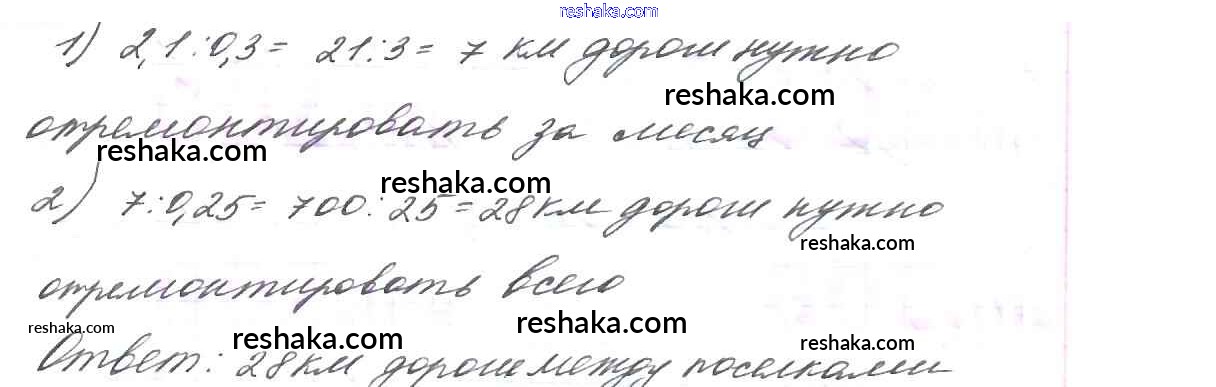 reshaka.com
1) 2,1:0,3= 21:3= 7 км дороги нужно
reshaka.com
отремонтировать за месяц
reshaka.com
reshaka.com
2) 7:0,25= 700:25=28км дороги нужно
reshaka.com
отремонтировать всего
reshaka.com
reshaka.com
reshaka.com
reshaka.com
Ответ: 28км дороги между поселками